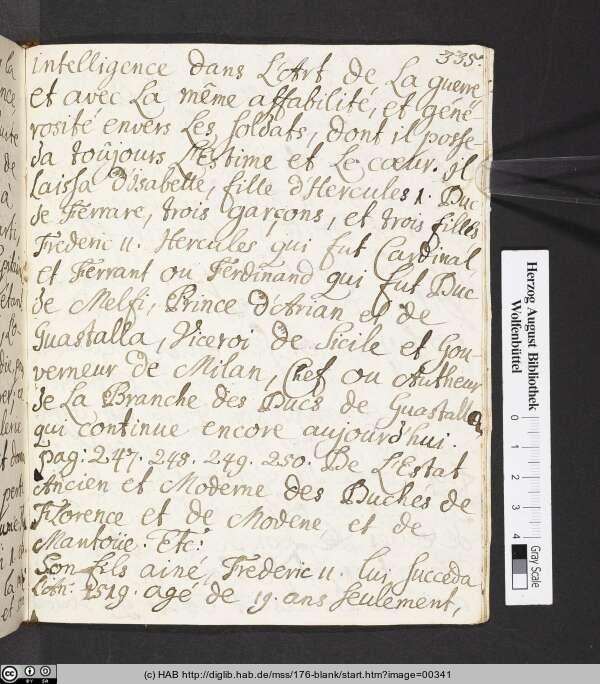 335.
intelligence dans L'Art de La guerre
et avec La même affabilité, et géné-
rosité envers Les soldats, dont il posse-
da toûjours L'Estime et Le coeur. Il
Laissa D'Isabelle, fille d'Hercules 1. Duc
de Ferrare, trois garçons, et trois filles
Frederic II. Hercules qui fut Cardinal
et Ferrant ou Ferdinand qui fut Duc
de Melfi, Prince d'Arian et de
Guastalla, Viceroi de Sicile et Gou-
verneur de Milan, Chef ou Autheur
de La Branche des Ducs de Guastalla
qui continue encore aujourd'hui.
pag: 247. 248. 249. 250. De L'Estat
Ancien et Moderne des Duchés de
Florence et de Modene et de
Mantoüe. Etc:
Son fils ainé, Frederic II. lui succeda
L'an: 1519. agé de 19 ans seulement,
Herzog August Bibliothek
Wolfenbüttel
0 1 2 3 4
Gray Scale
(c) HAB http://diglib.hab.de/mss/176-blank/start.htm?image=00341